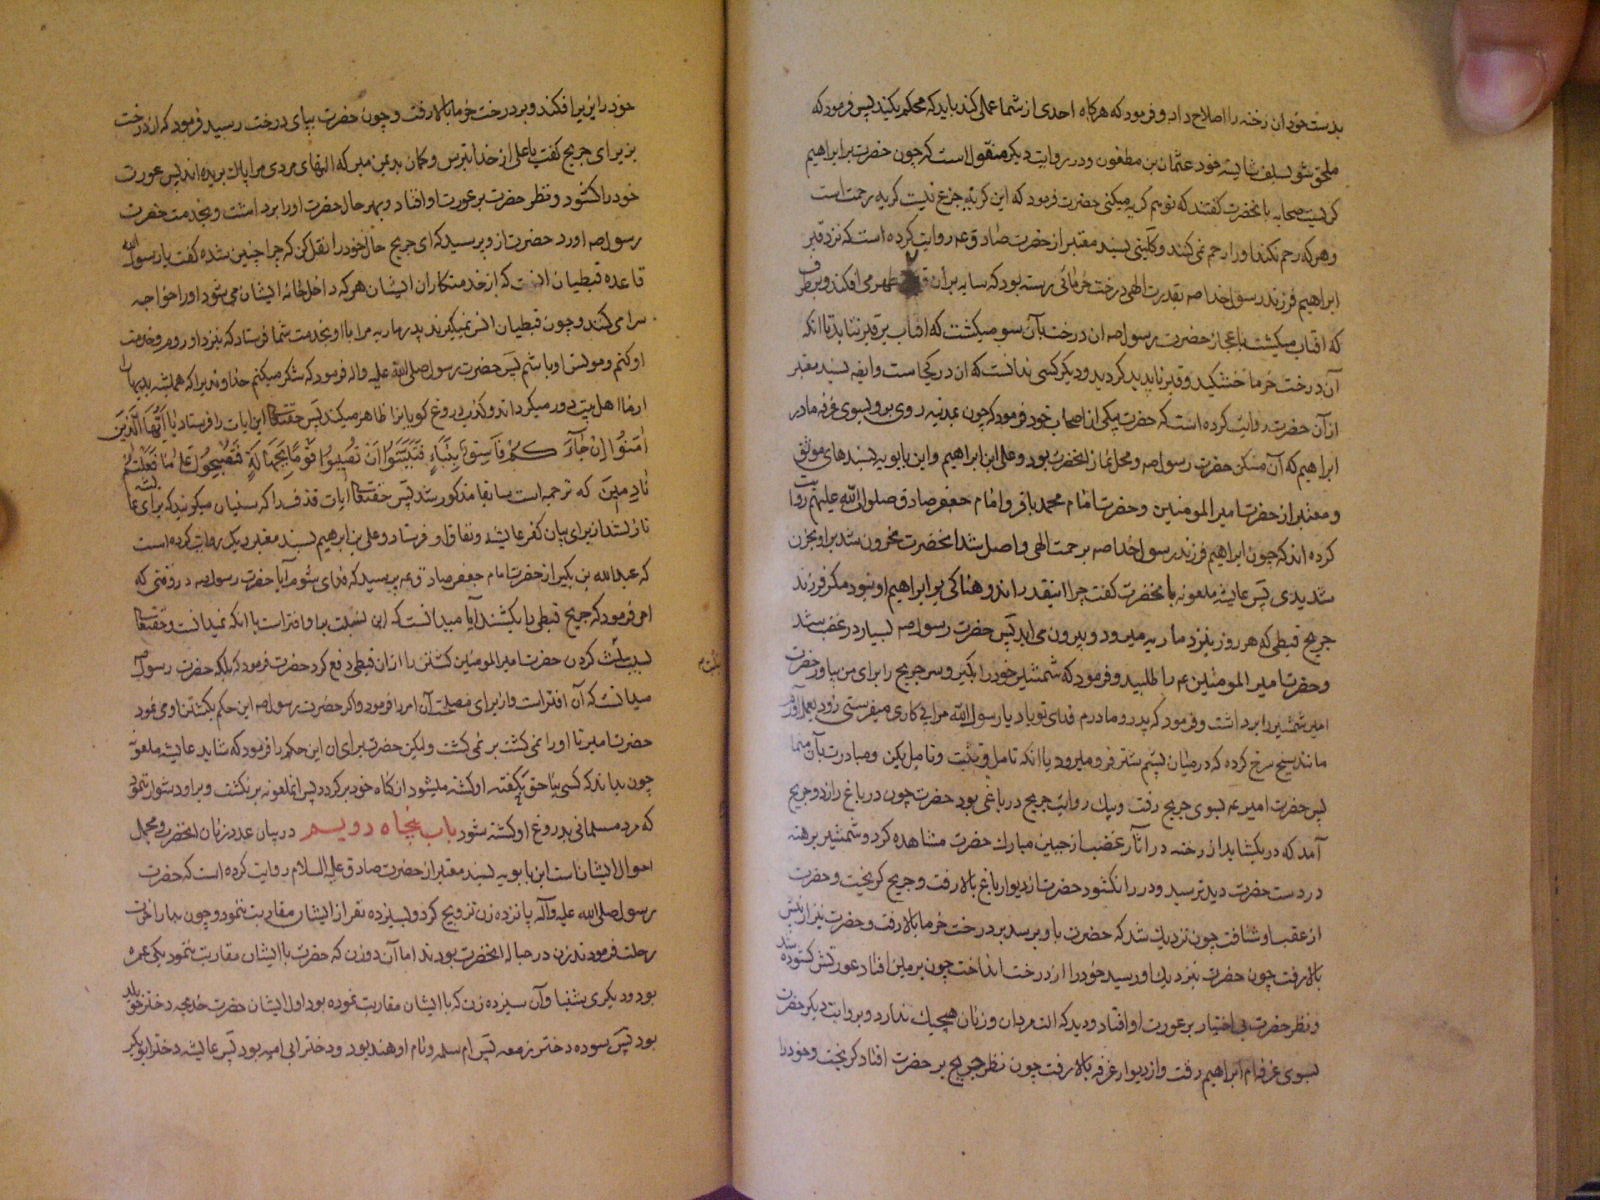 بدست خود ان رخنه را اصلاح داد و فرمود که هرکاه احدی از شما عملی کند باید که محکم بکند پس فرمود که
ملحق شو بسلف شایسته خود عثمان بن مظعون و در روایت دیکر منقول است که چون حضرت بر ابراهیم
کریست صحابه با نحضرت کفتند که تو هم کریه میکنی حضرت فرمود که این کریه جزع نیست کریه رحمت است
و هر که رحم نکند او را رحم نمی کنند و کلینی بسند معتبر از حضرت صادق عه روایت کرده است که نزد قبر
ابراهیم فرزند رسول خدا صه بقدرت الهی درخت خرمائی رسته بود که سایه بر ان می افکند و بهر طرف
که افتاب میکشت باعجاز حضرت رسول صه ان درخت بآن سو میکشت که افتاب بر قبر نتابد تا انکه
آن درخت خرما خشکید و قبر ناپدید کردید و دیکر کسی ندانست که ان در کجاست و ایضه بسند معتبر
از آن حضرت روایت کرده است که حضرت بیکی از اصحاب خود فرمود که چون بمدینه روی برو بسوی غرفه مادر
ابراهیم که آن مسکن حضرت رسول صه و محل نماز انحضرت بود و علی ابن ابراهیم و ابن بابویه بسندهای موثق
و معتبر از حضرت امیر المومنین و حضرت امام محمد باقر و امام جعفر صادق صلوات الله علیهم روایت
کرده اند که چون ابراهیم فرزند رسول خدا صه برحمت الهی واصل شد انحضرت محزون شد بر او بحزن
شدیدی پس عایشه ملعونه با نحضرت کفت چرا اینقدر اندوهناکی بر ابراهیم او نبود مکر فرزند
جریح قبطی که هر روز بنزد ماریه میرود و بیرون می اید پس حضرت رسول صه بسیار در غضب شد
و حضرت امیر المومنین عه را طلبید و فرمود که شمشیر خود را بکیر و سر جریح را برای من بیاور حضرت
امیر شمشیر را برداشت و فرمود که پدر و مادرم فدای تو باد یا رسول الله مرا پی کاری میفرستی زود بعمل آورم
مانند سیخ سرخ کرده که در میان پشم شتر فرو میرود یا انکه تامل و تثبت و تامل بکن و مبادرت بآن منما
پس حضرت امیر عه بسوی جریح رفت و بیک روایت جریح در باغی بود حضرت چون در باغ را زد و جریح
آمد که در بکشاید از رخنه در آثار غضب از جبین مبارک حضرت مشاهده کرد و شمشیر برهنه
در دست حضرت دید ترسید و در را نکشود حضرت از دیوار باغ بالا رفت و جریح کریخت و حضرت
از عقب او شتافت چون نزدیک شد که حضرت باو برسد بر درخت خرما بالا رفت و حضرت نیز از پیش
بالا رفت چون حضرت بنزدیک او رسید خود را از درخت انداخت چون بر زمین افتاد عورتش کشوده شد
و نظر حضرت بی اختیار بر عورت او افتاد و دید که الت مردان و زنان هیچیک ندارد و بروایت دیکر حضرت
بسوی غرفه ام ابراهیم رفت و از دیوار غرفه بالا رفت چون نظر جریح بر حضرت افتاد کریخت و خود را
خود را بزیر افکند و بر درخت خرما بالا رفت و چون حضرت بپای درخت رسید فرمود که از درخت
بزیر ای جریح کفت یا علی از خدا بترس و کمان بد بمن مبر که التهای مردی مرا پاک بریده اند پس عورت
خود را کشود و نظر حضرت بر عورت او افتاد و بهر حال حضرت او را برداشت و بخدمت حضرت
رسول صه اورد حضرت از و پرسید که ای جریح حال خود را نقل کن که چرا چنین شده کفت یا رسول الله
قاعده قبطیان است که از خدمتکاران ایشان هر که داخل خانه ایشان می شود او را خواجه
سرا می کنند و چون قبطیان انس نمیکیرند پدر ماریه مرا با او بخدمت شما فرستاد که بنزد او روم و خدمت
او کنم و مونس او باشم پس حضرت رسول صلی الله علیه واله فرمود که شکر میکنم خداوندیرا که همیشه بدیها
از ما اهل بیت دور میکرداند و کذب دروغ کویان را ظاهر میکند پس حقتعالی این ایات را فرستاد یَا اَیُّهَا الَّذِینَ
اٰمَنُوا اِنْ جَآءَ کُمْ فَاسِقٌ بِنَبَاءٍ فَتَبَیَّنُوا اَنْ تُصِیبُوا قَوْمًا بِجَهَالَةٍ فَتُصْبِحُوا عَلٰی مَا فَعَلْتُمْ
نَادِمِینَ که ترجمه است سابقا مذکور شد پس حقتعالی ایات قذف را که سنیان میکویند که برای عایشه
نازل شد از برای بیان کفر عایشه و نفاق او فرستاد و علی بن ابرهیم بسند معتبر دیکر روایت کرده است
که عبدالله بن بکیر از حضرت امام جعفر صادق عه پرسید که فدای تو شوم آیا حضرت رسول صه در وقتی که
امر فرمود که جریح قبطی را بکشند آیا میدانست که این نسبت بباو افتراست یا انکه نمیدانست و حقتعالی
بسبب تثبت کردن حضرت امیر المومنین کشتن را از ان قبطی دفع کرد حضرت فرمود که بلکه حضرت رسول صه
میدانست که آن افتراست و از برای مصلحت آن امر را فرمود و اکر حضرت رسول صه این حکم بکشتن او می نمود
حضرت امیر تا او را نمی کشت بر نمی کشت و لیکن حضرت برای ان این حکم را فرمود که شاید عایشه ملعونه
چون بداند که کسی بنا حق بکفته او کشته میشود از کناه خود برکردد پس انملعونه بر نکشت و بر او دشوار ننمود
که مرد مسلمانی بدروغ او کشته شود باب پنجاه و دویم در بیان عدد زنان انحضرت و مجمل
احوال ایشانست ابن بابویه بسند معتبر از حضرت صادق علیه السلام روایت کرده است که حضرت
رسول صلی الله علیه و آله پانزده زن تزویج کرد و بسیزده نفر از ایشان مقاربت نمود و چون بدار اخرت
رحلت فرمود نه زن در حباله انحضرت بودند اما آن دو زن که حضرت با ایشان مقاربت ننمود یکی عمره
بود و دیکری شنبا و آن سیزده زن که با ایشان مقاربت نموده بود اول ایشان حضرت خدیجه دختر خویلد
بود پس سوده دختر زمعه پس ام سلمه و نام او هند بود و دختر ابی امیه بود پس عایشه دختر ابو بکر